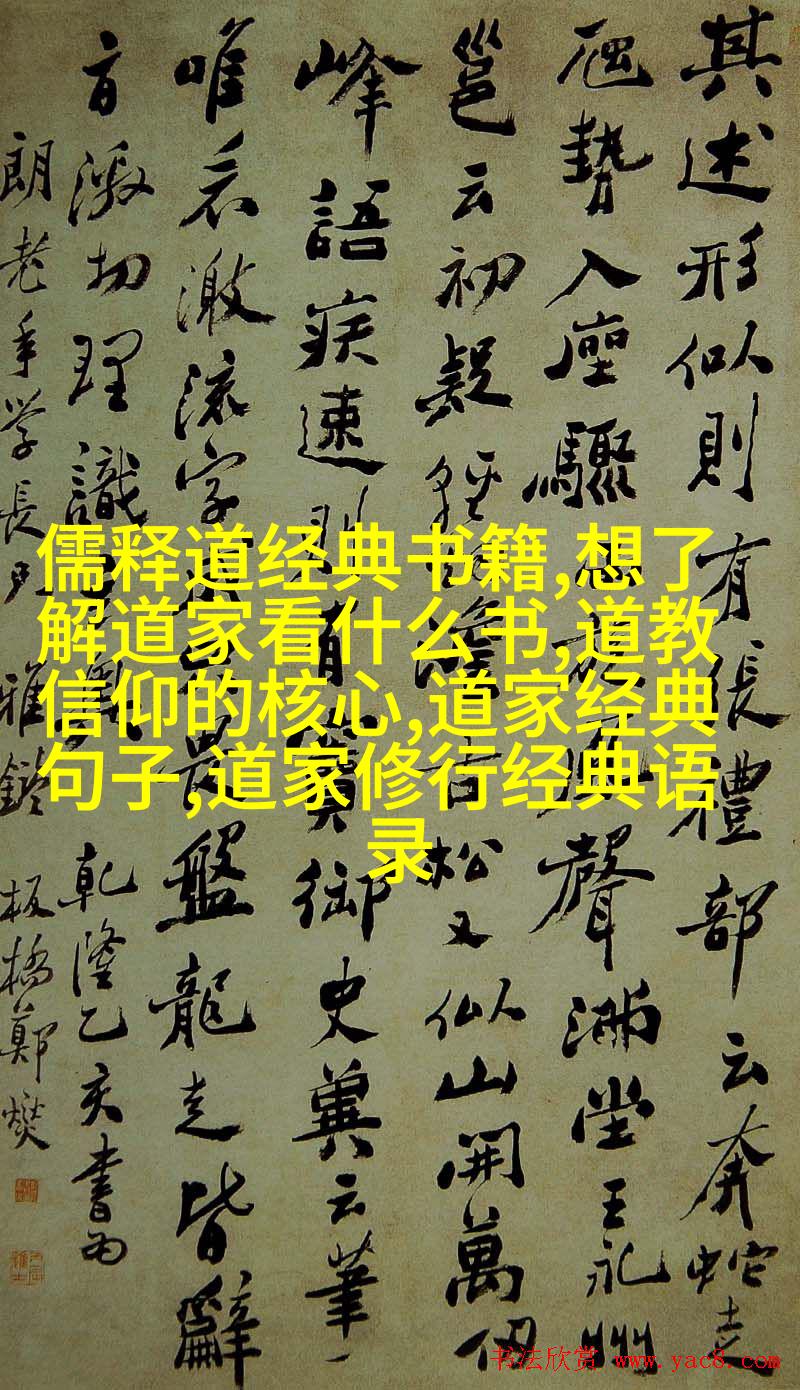 其述形似則有張禮部云奔蛇走
虺勢入座驟雨旋風聲滿堂王永州
邕云初疑輕煙澹古松又似山開萬仞
峰語疾速則有竇御史冀云筆一
唯看激流字畏盤龍走皆辭
旨激切理識乾隆乙亥書為
朗老年學長兄雅鑒板橋鄭燮
儒释道经典书籍,想了
解道家看什么书,道教
信仰的核心,道家经典
句子,道家修行经典语
录
书法欣赏 www.yac8.com